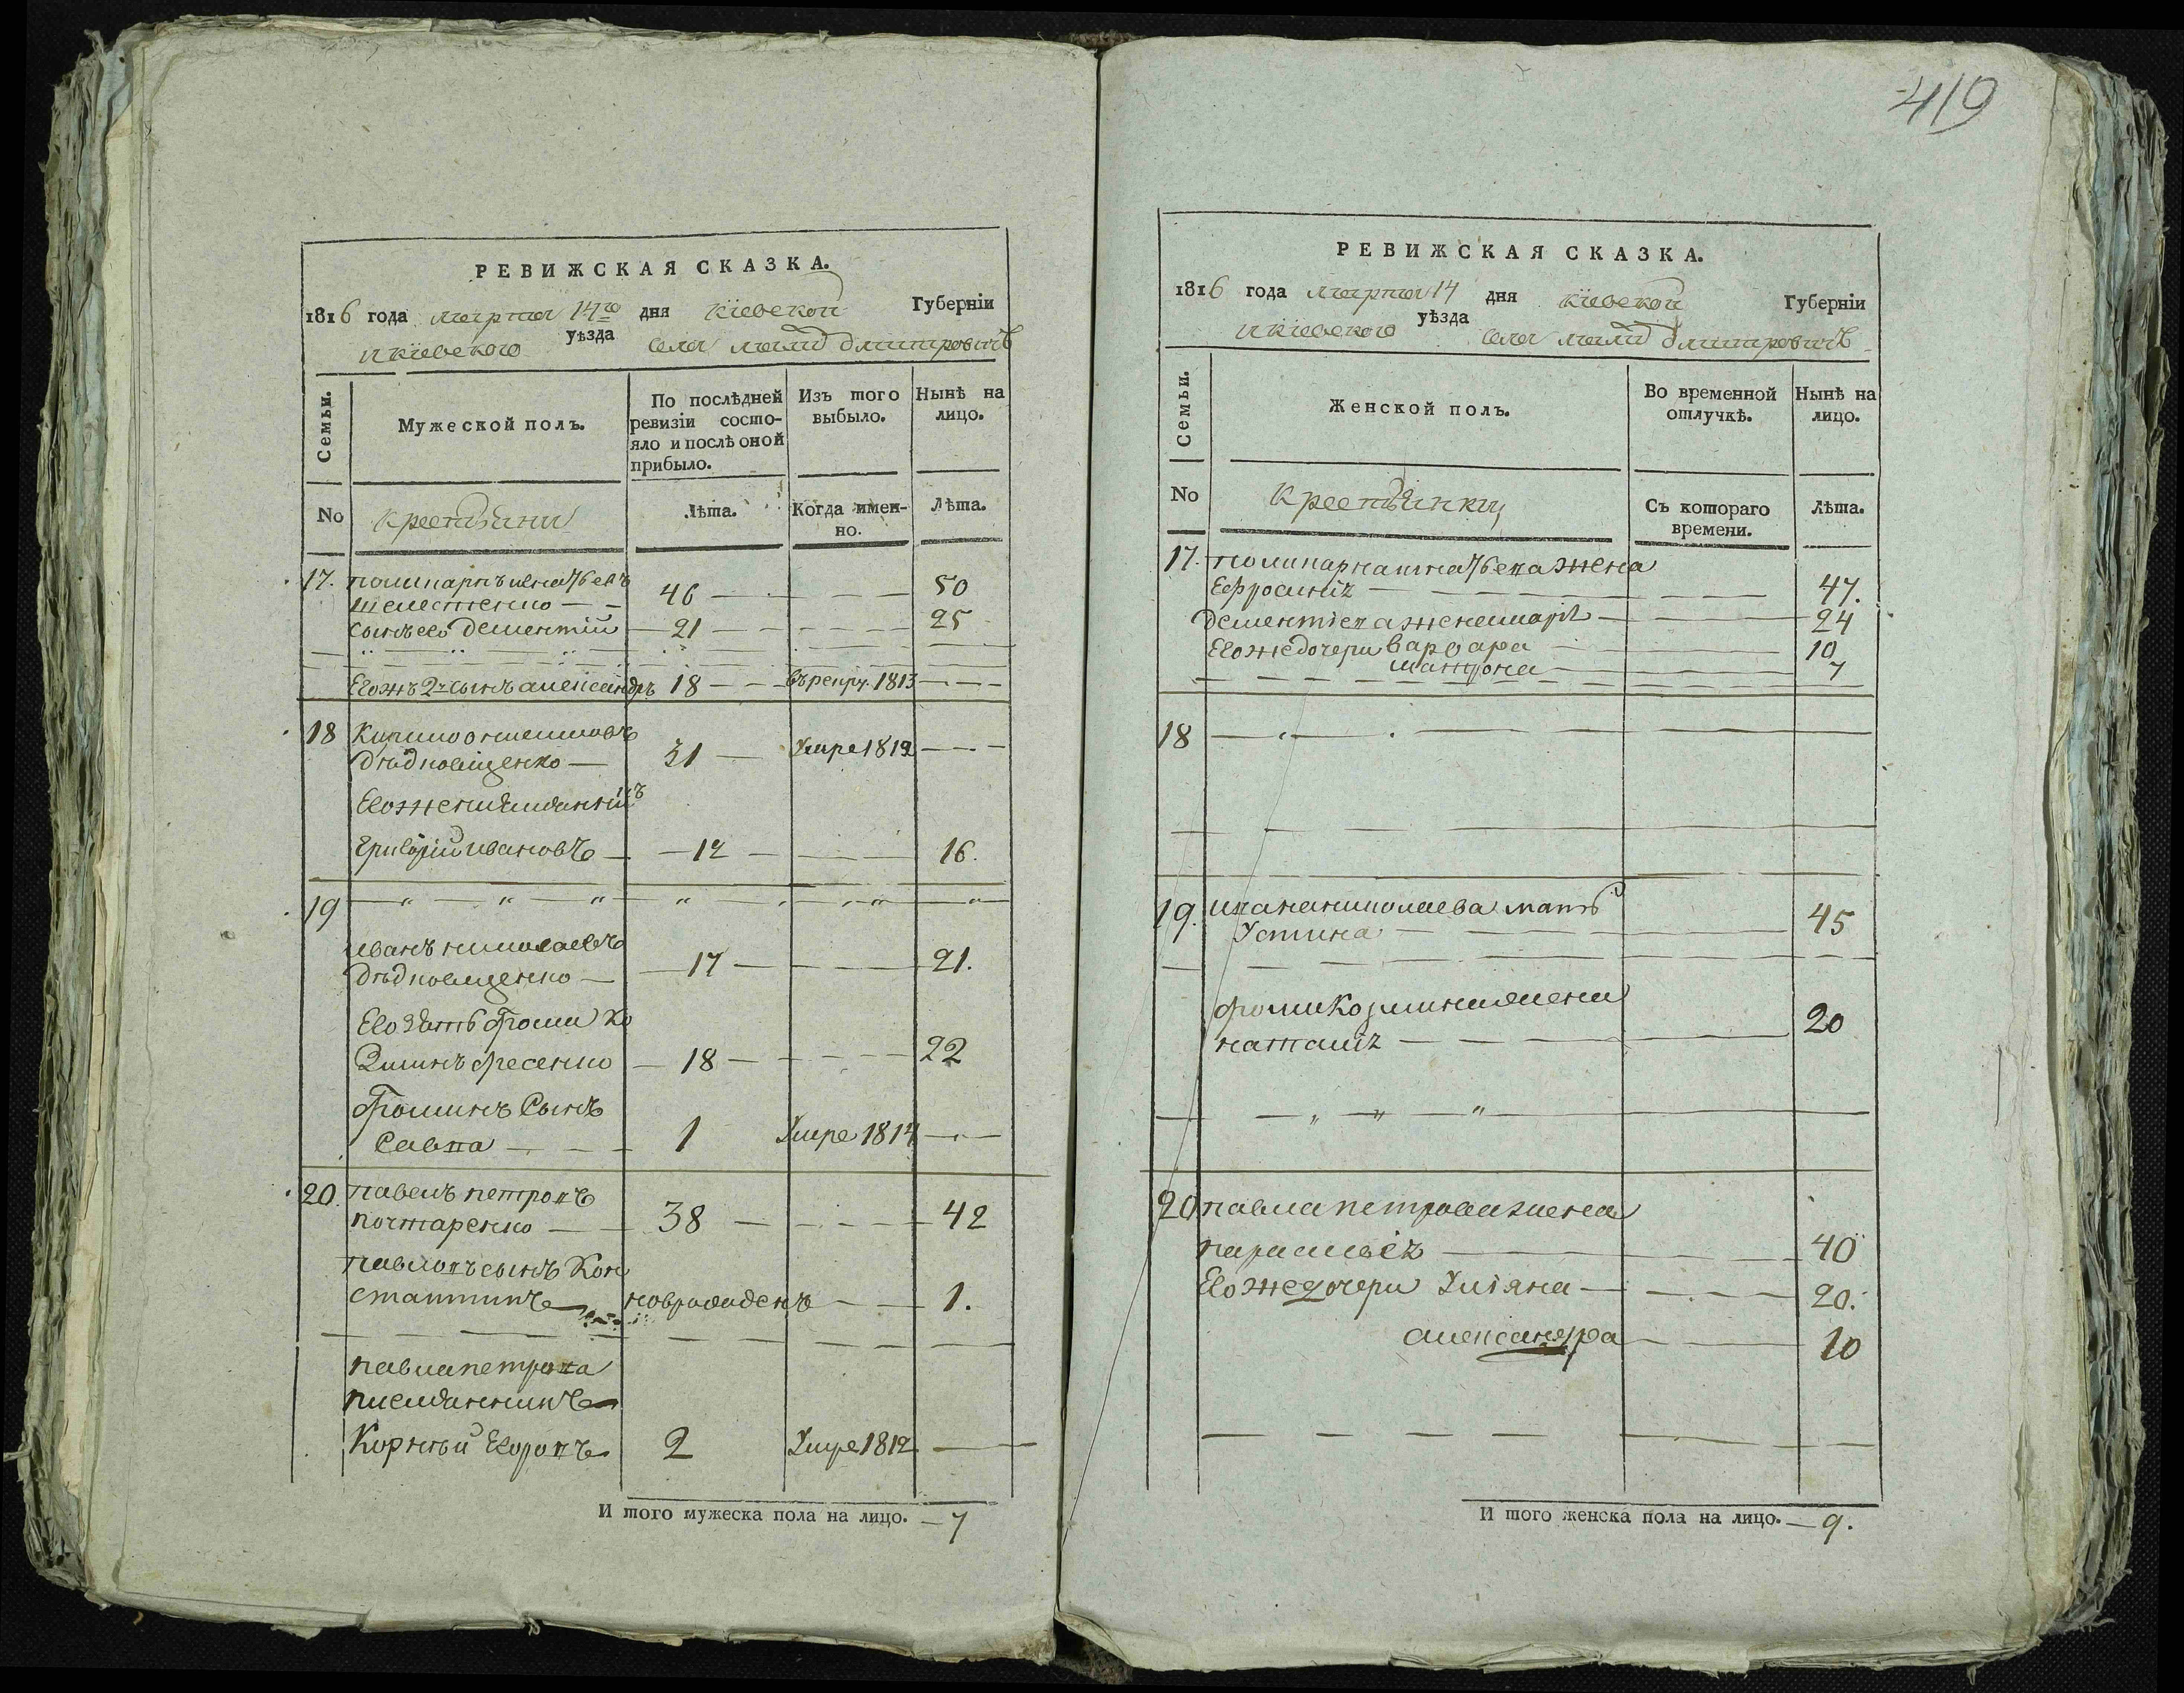 419
РЕВИЖСКАЯ СКАЗКА.
1816 года марта 14го дня Кіевской Губерніи
и кіевского уѣзда села малы дмитровичъ
Семьи.
Мужеской полъ.
По послѣдней ревизіи состо-
яло и послѣ оной
прибыло.
Изъ того
выбыло.
Нынѣ на
лицо.
No
Крестьяни
Лѣта.
Когда имен-
но.
Лѣта.
17. поликарпъ
46 50
сынъ его дементий 21 25
Егожъ 2й сынъ александръ 18 въ рекру. 1813
18 Кирило
Дѣдковщенко 31 Умре 1812
Григорій ивановъ 12 16.
19
иванъ николаевъ
Дѣдковщенко 17 21.
Его зять Фома Ко
змин Фесенко 18 22
Фоминъ Сынъ
Савва 1 Умре 1814
20. павелъ петровъ
почтаренко 38 42
павловъ сынъ Кон
стантинъ новорожденъ 1.
павла петрова
Корній Егоровъ 2 Умре 1812
И того мужеска пола на лицо. 7
РЕВИЖСКАЯ СКАЗКА.
1816 года марта 14 дня кіевской Губерніи
и кіевского уѣзда села малы дмитровичъ
Семьи.
Женской полъ.
Во временной
отлучкѣ.
Нынѣ на
лицо.
No
Крестьянки
Съ котораго
времени.
Лѣта.
17. поликарпа жена
Ефросинія 47.
дементіева жена марія 24
Егожедочери варвара 10
матрона 7
18
19. ивана николаева мать
Устина 45
фомы Козмина жена
наталія 20
20 павла петрова жена
парасковія 40
Егоже дочери Уліяна 20.
александра 10
И того женска пола на лицо. 9.